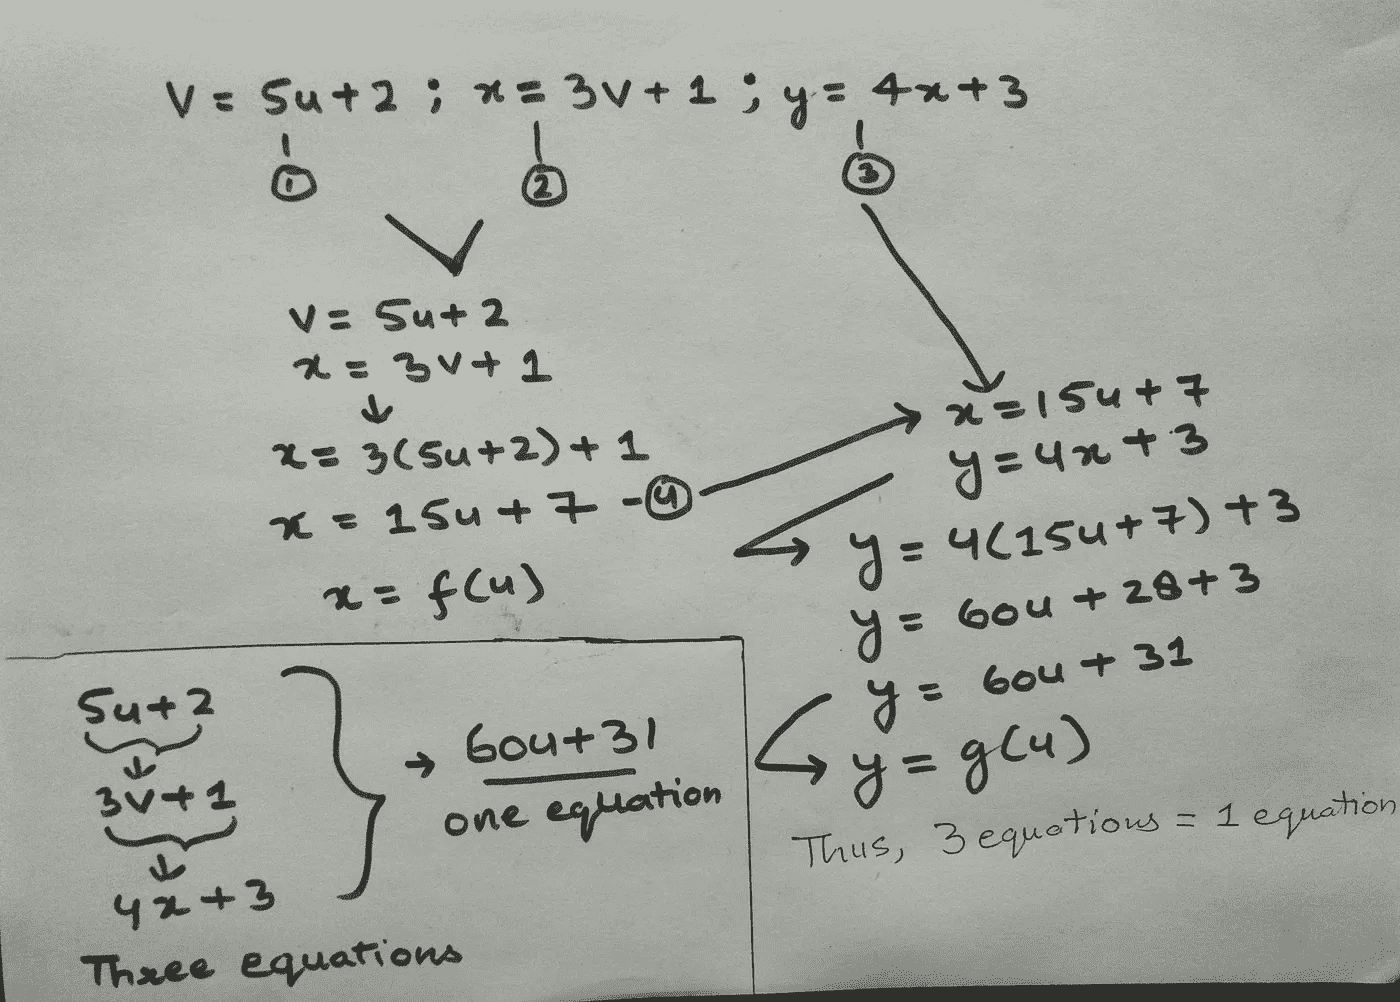 V = 5u+2 ; x = 3V+1 ; y = 4x+3
① ② ③
V = 5u+2
x = 3V+1
↓
x = 3(5u+2)+1
x = 15u+7 -④
x = f(u)
x=15u+7
y=4x+3
y = 4(15u+7)+3
y = 60u+28+3
y = 60u+31
y = g(u)
Thus, 3 equations = 1 equation
5u+2
↓
3V+1
↓
4x+3
Three equations
→ 60u+31
one equation